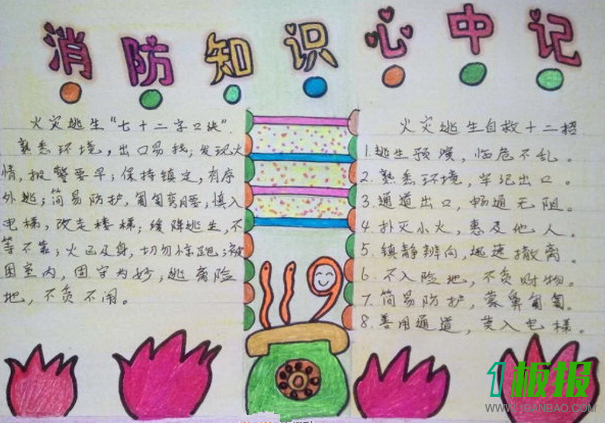 消防知识心中记
火灾逃生“七十二字口诀”.
熟悉环境,出口易找;发现火
情,报警要早;保持镇定,有序
外逃;简易防护,匍匐弯腰;慎入
电梯,改走楼梯;缓降逃生,不
等不靠;火已及身,切勿惊跑;被
困室内,固守为妙;逃离险
地,不负不闹。
119
火灾逃生自救十二招
1.逃生预演,临危不乱。
2.熟悉环境,牢记出口。
3.通道出口,畅通无阻。
4.扑灭小火,惠及他人。
5.镇静辨向,迅速撤离。
6.不入险地,不贪财物。
7.简易防护,蒙鼻匍匐。
8.善用通道,莫入电梯。
1板报
WWW.1BANBAO.COM